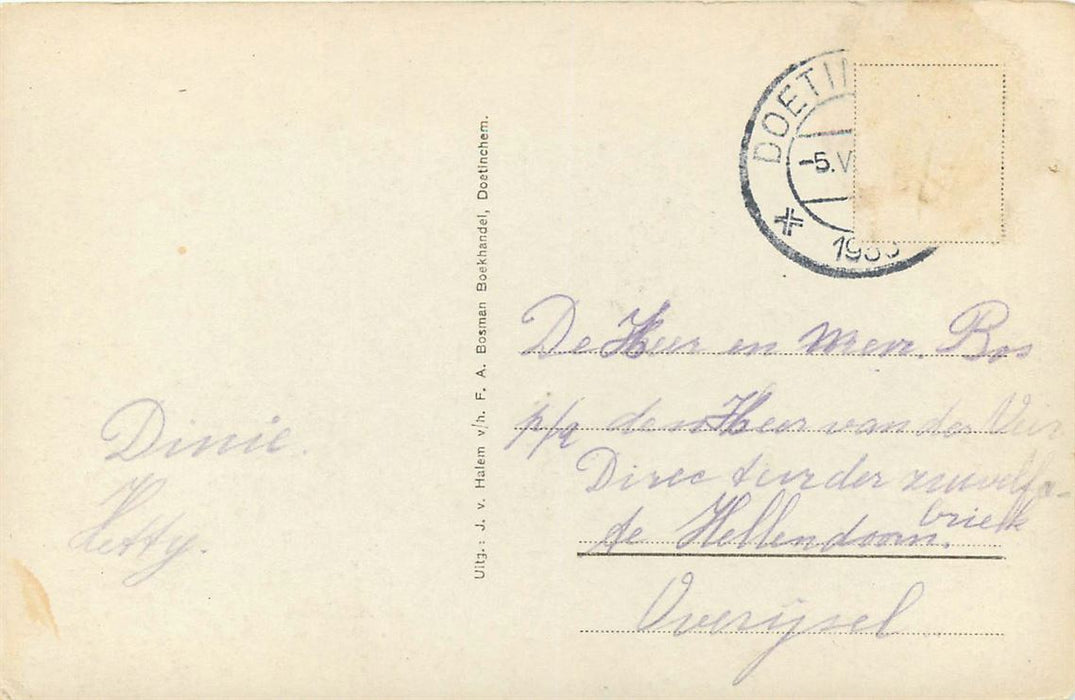 DOETI
-5.V
193
Uitg.: J. v. Halem v/h. F. A. Bosman Boekhandel, Doetinchem.
De Heer en Mevr. Bos
p/a den Heer van der Veer
Directeur der zuivelfa-
briek
te Hellendoorn.
Overijsel
Dinie.
Hetty.